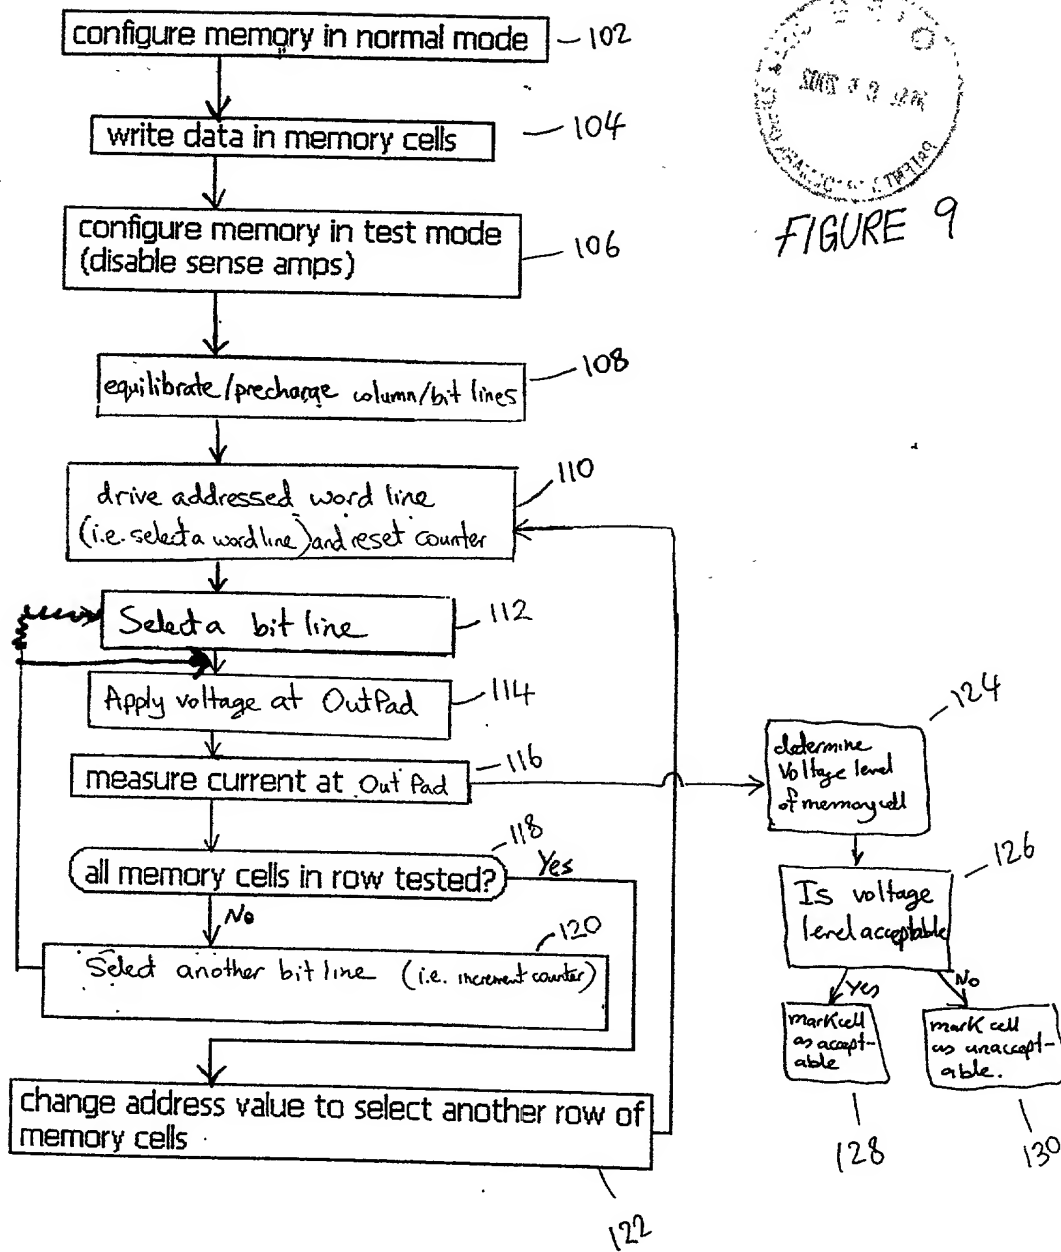 configure memory in normal mode
102
write data in memory cells
104
configure memory in test mode
(disable sense amps)
106
FIGURE 9
equilibrate/precharge column/bit lines
108
drive addressed word line
(i.e. select a word line) and reset counter
110
Select a bit line
112
Apply voltage at OutPad
114
measure current at Out Pad
116
all memory cells in row tested?
118
Yes
No
Select another bit line (i.e. increment counter)
120
change address value to select another row of
memory cells
122
determine
voltage level
of memory cell
124
Is voltage
level acceptable
126
Yes
No
mark cell
as accept-
able
128
mark cell
as unaccept-
able.
130